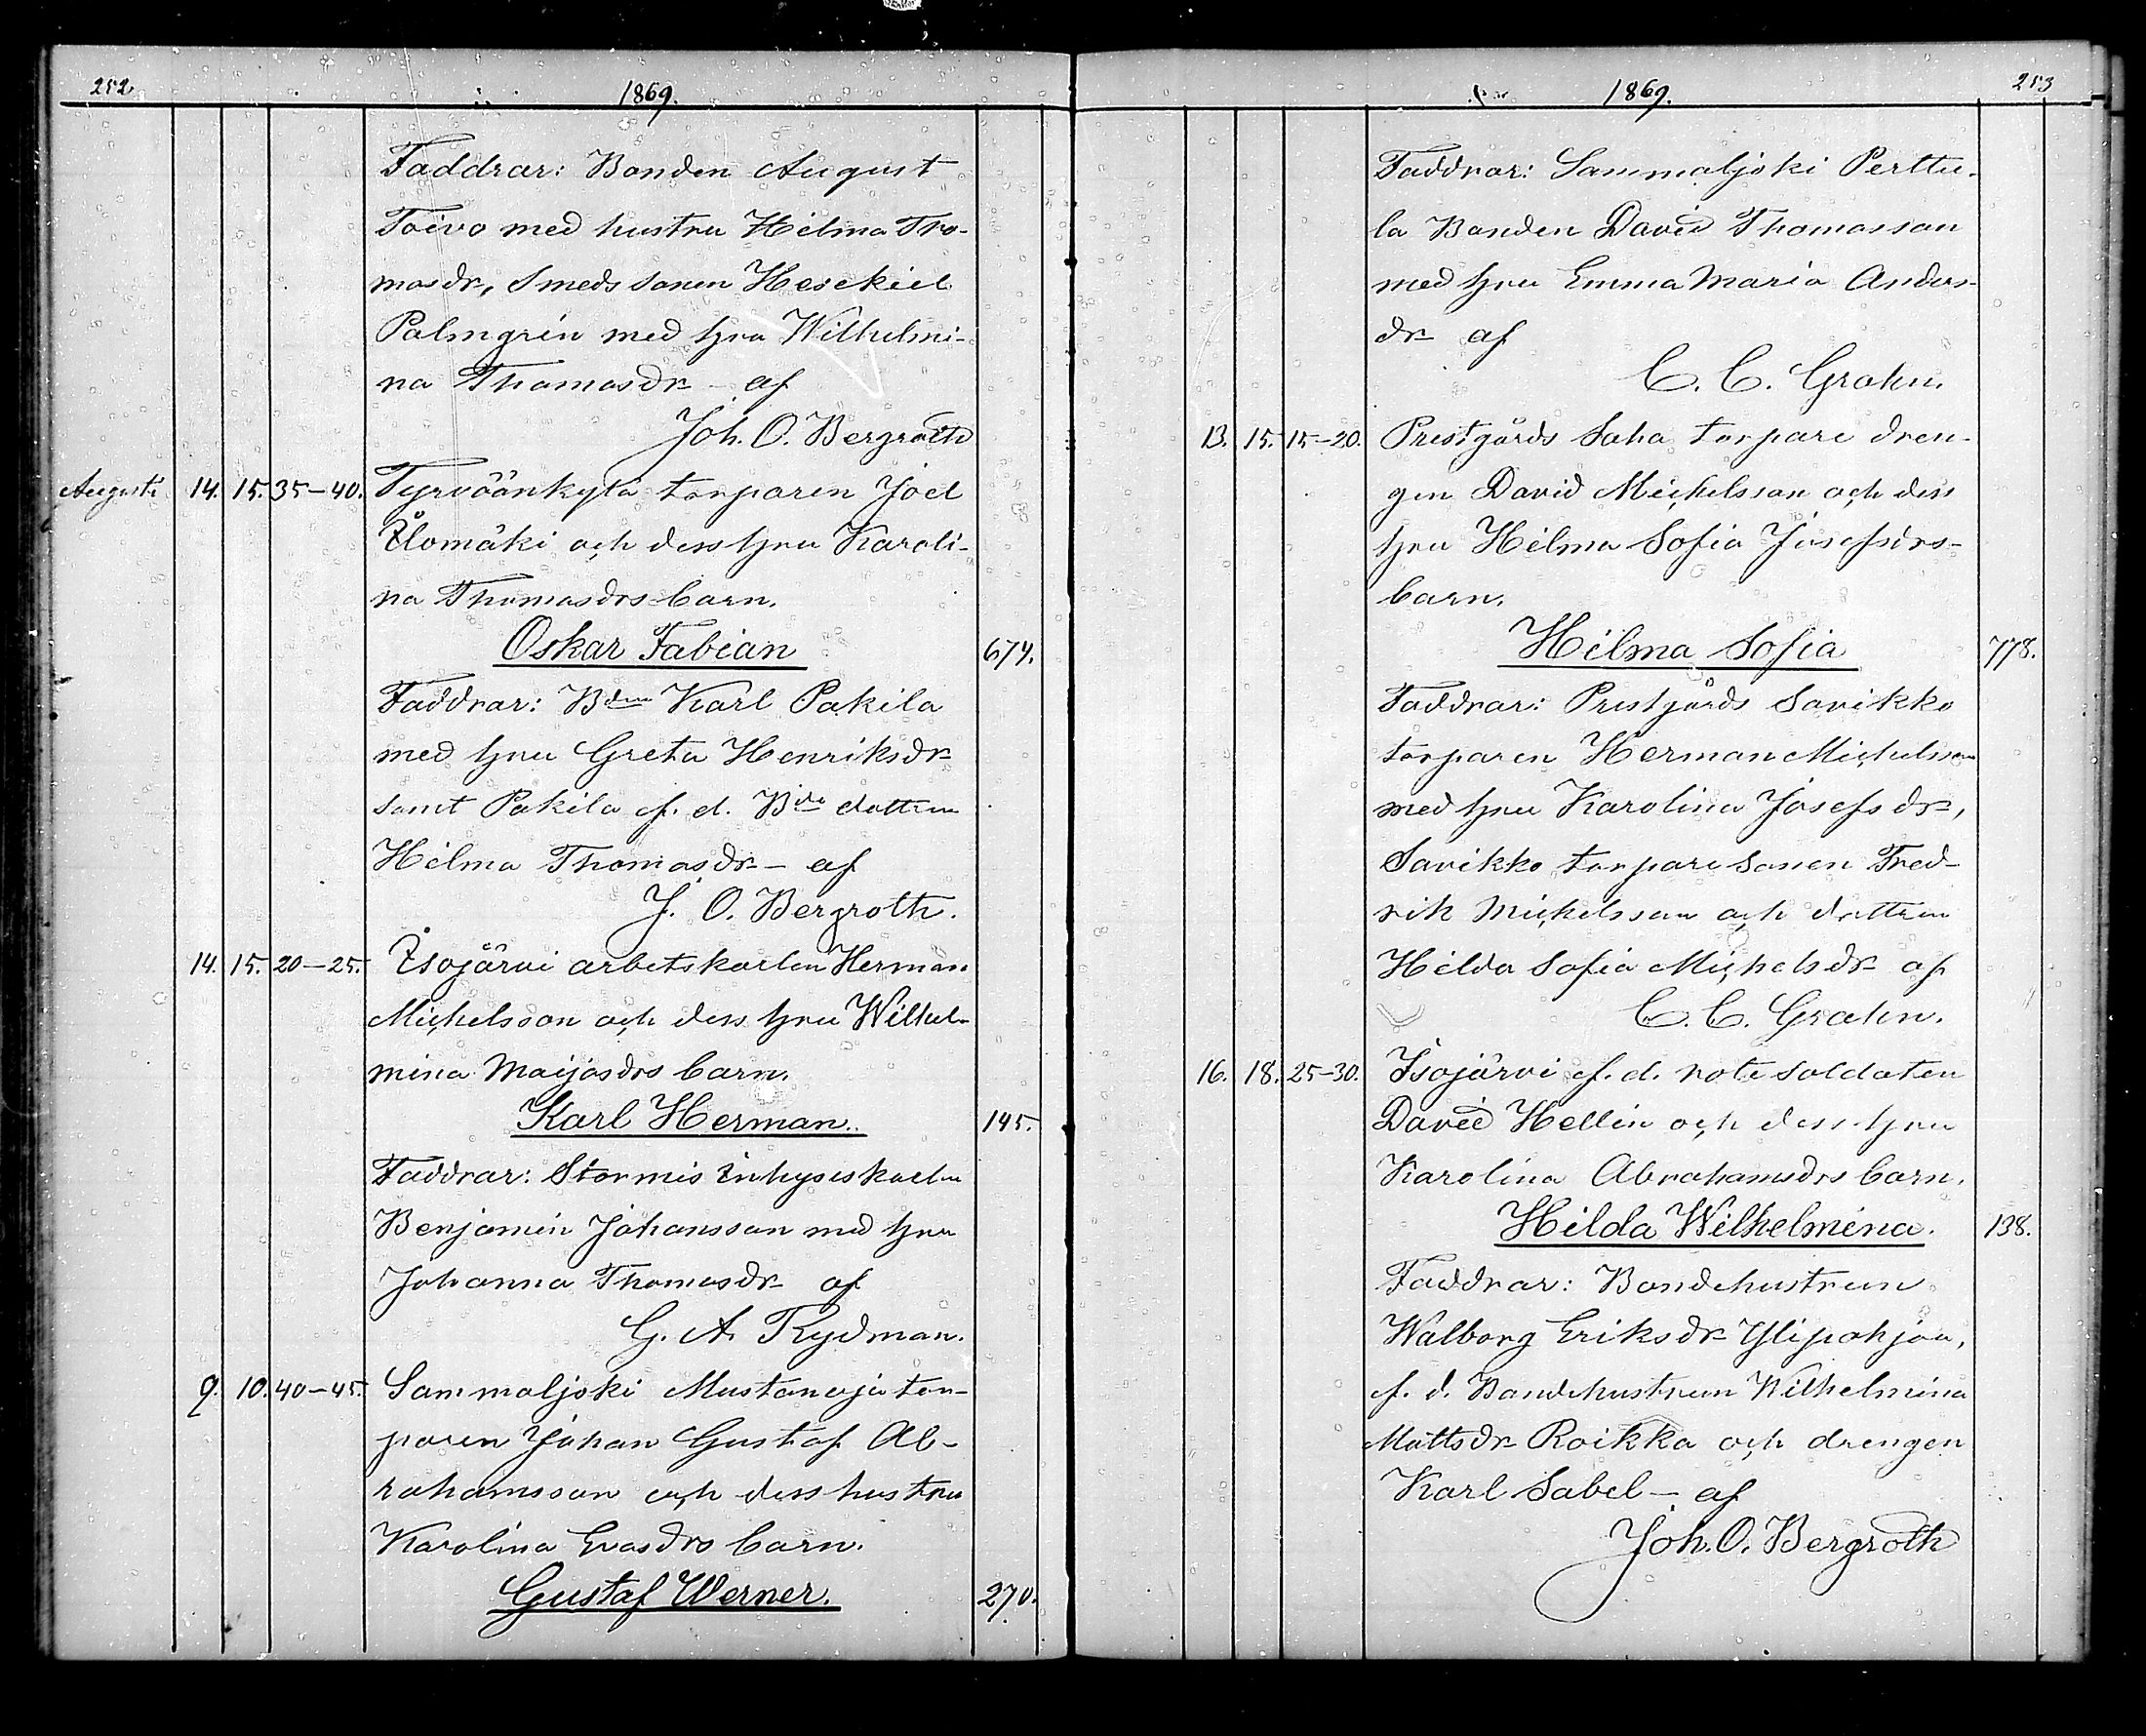 252
1869.
Faddrar: Bonden August
Toivo med hustru Hilma Tho-
masdr, Smeds sonen Hesekiel
Palmgrén med hru Wilhelmi-
na Thomasdr - af
Joh. O. Bergroth
Augusti 14. 15. 35-40. Tyrväänkylä torparen Joel
Ulomäki och dess hru Karoli-
na Thomasdrs barn.
Oskar Fabian 674.
Faddrar: Bden Karl Pakila
med hru Greta Henriksdr
samt Pakila f. d. Bde dottren
Hilma Thomasdr - af
J. O. Bergroth.
14. 15. 20-25. Isojärvi arbetskarlen Herman
Michelsson och dess hru Wilhel-
mina Maijasdrs barn.
Karl Herman. 145.
Faddrar: Stormis Inhyseskarlen
Benjamin Johansson med hru
Johanna Thomasdr af
G. A. Rydman.
9. 10. 40-45. Sammaljoki Mustanoja tor-
paren Johan Gustaf Ab-
rahamsson och dess hustru
Karolina Evasdrs barn.
Gustaf Werner. 270.
1869.
253
Faddrar: Sammaljoki Perttu-
la Bonden David Thomasson
med hru Emma Maria Anders-
dr af
C. C. Grahn.
13. 15. 15-20. Prestgårds Saha torpare dren-
gen David Michelsson och dess
hru Hilma Sofia Josefsdrs-
barn.
Hilma Sofia 778.
Faddrar: Prestgårds Savikko
torparen Herman Michelsson
med hru Karolina Josefsdr,
Savikko torpare sonen Fred-
rik Michelsson och dottren
Hilda Sofia Michelsdr af
C. C. Grahn.
16. 18. 25-30. Isojärvi f. d. rote soldaten
David Hellin och dess hru
Karolina Abrahamsdrs barn.
Hilda Wilhelmina. 138.
Faddrar: Bondehustrun
Walborg Eriksdr Ylipohjaa,
f. d. Bondehustrun Wilhelmina
Mattsdr Roikka och drengen
Karl Sabel - af
Joh. O. Bergroth